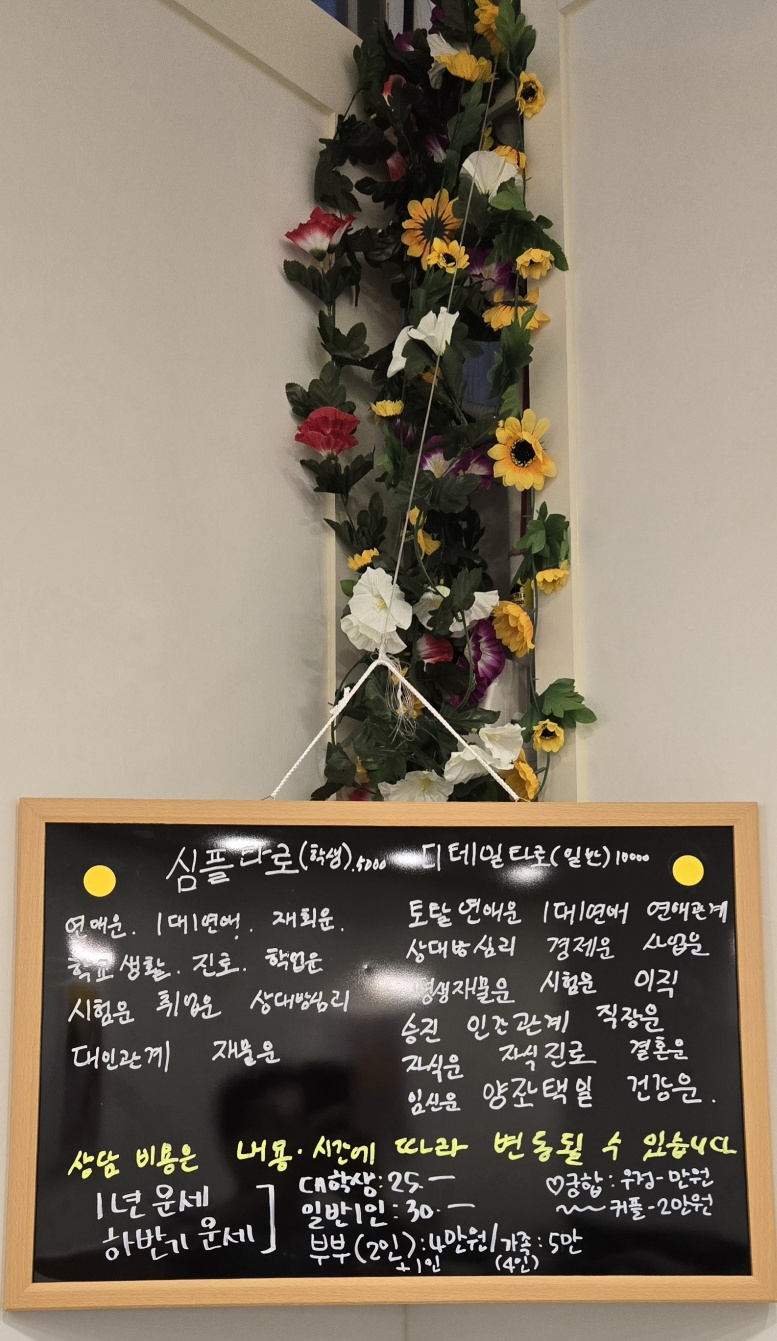 심플타로(학생).5000
연애운. 1대1연애. 재회운.
학교생활. 진로. 학업운
시험운 취업운 상대방심리
대인관계 재물운
디테일타로(일반)10000
토탈연애운 1대1연애 연애관계
상대방심리 경제운 사업운
평생재물운 시험운 이직
승진 인간관계 직장운
자식운 자식진로 결혼운
임신운 양자택일 건강운.
상담 비용은 내용·시간에 따라 변동될 수 있습니다
1년 운세
하반기 운세
대학생:25—
일반1인:30.—
부부(2인):4만원/가족:5만
+1인 (4인)
♡궁합:우정-만원
커플-2만원